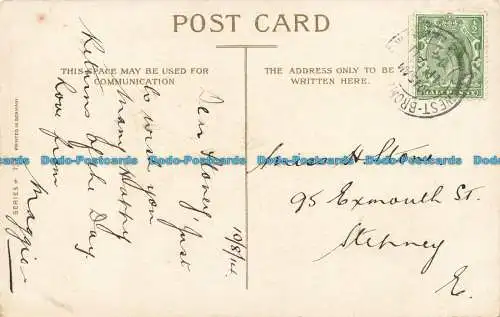 POST CARD
THIS SPACE MAY BE USED FOR
COMMUNICATION
THE ADDRESS ONLY TO BE
WRITTEN HERE.
HALF PENNY
10/8/14
Dear Stoney, Just
to wish you
many Happy
Returns of the Day.
Love from
Maggie
Miss H. Stone
95 Exmouth St.
Stepney
E.
PRINTED IN GERMANY
SERIES
Dodo-Postcards Dodo-Postcards Dodo-Postcards Dodo-Postcards Dodo-Postcards